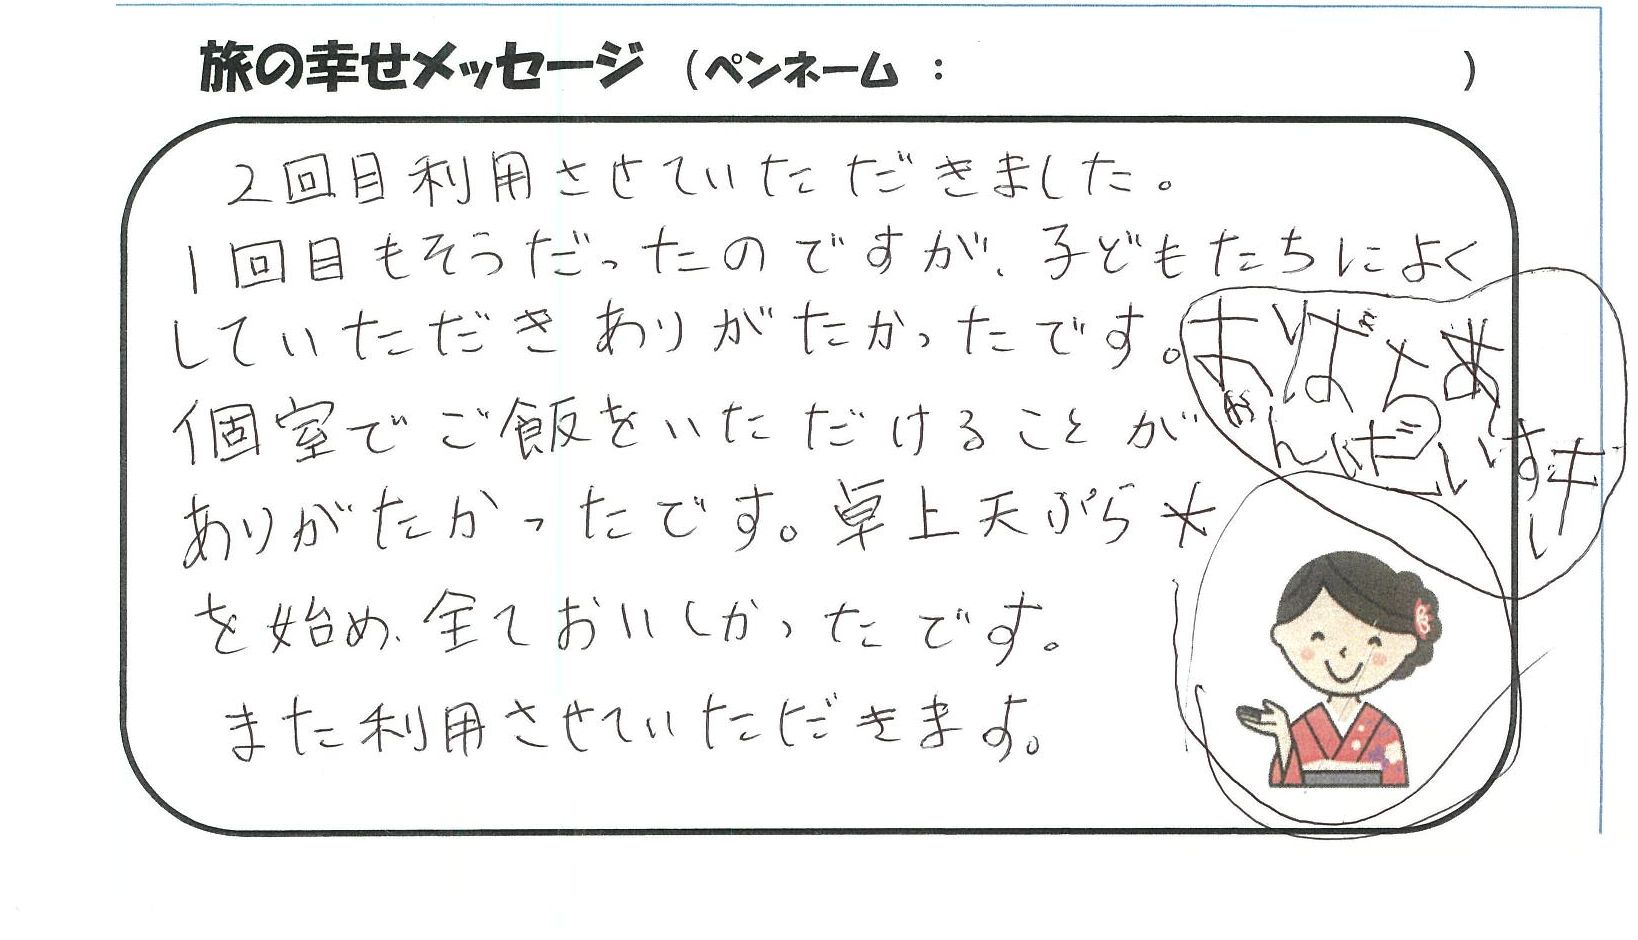 旅の幸せメッセージ (ペンネーム : )
2回目利用させていただきました。
1回目もそうだったのですが、子どもたちによく
していただきありがたかったです。
個室でご飯をいただけることが
ありがたかったです。卓上天ぷら
を始め、全ておいしかったです。
また利用させていただきます。
おばちあ